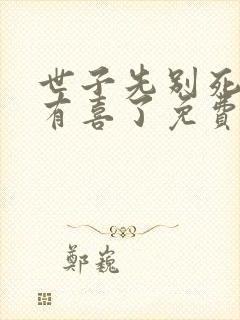 世子先别死
有喜了免費
鄭巍